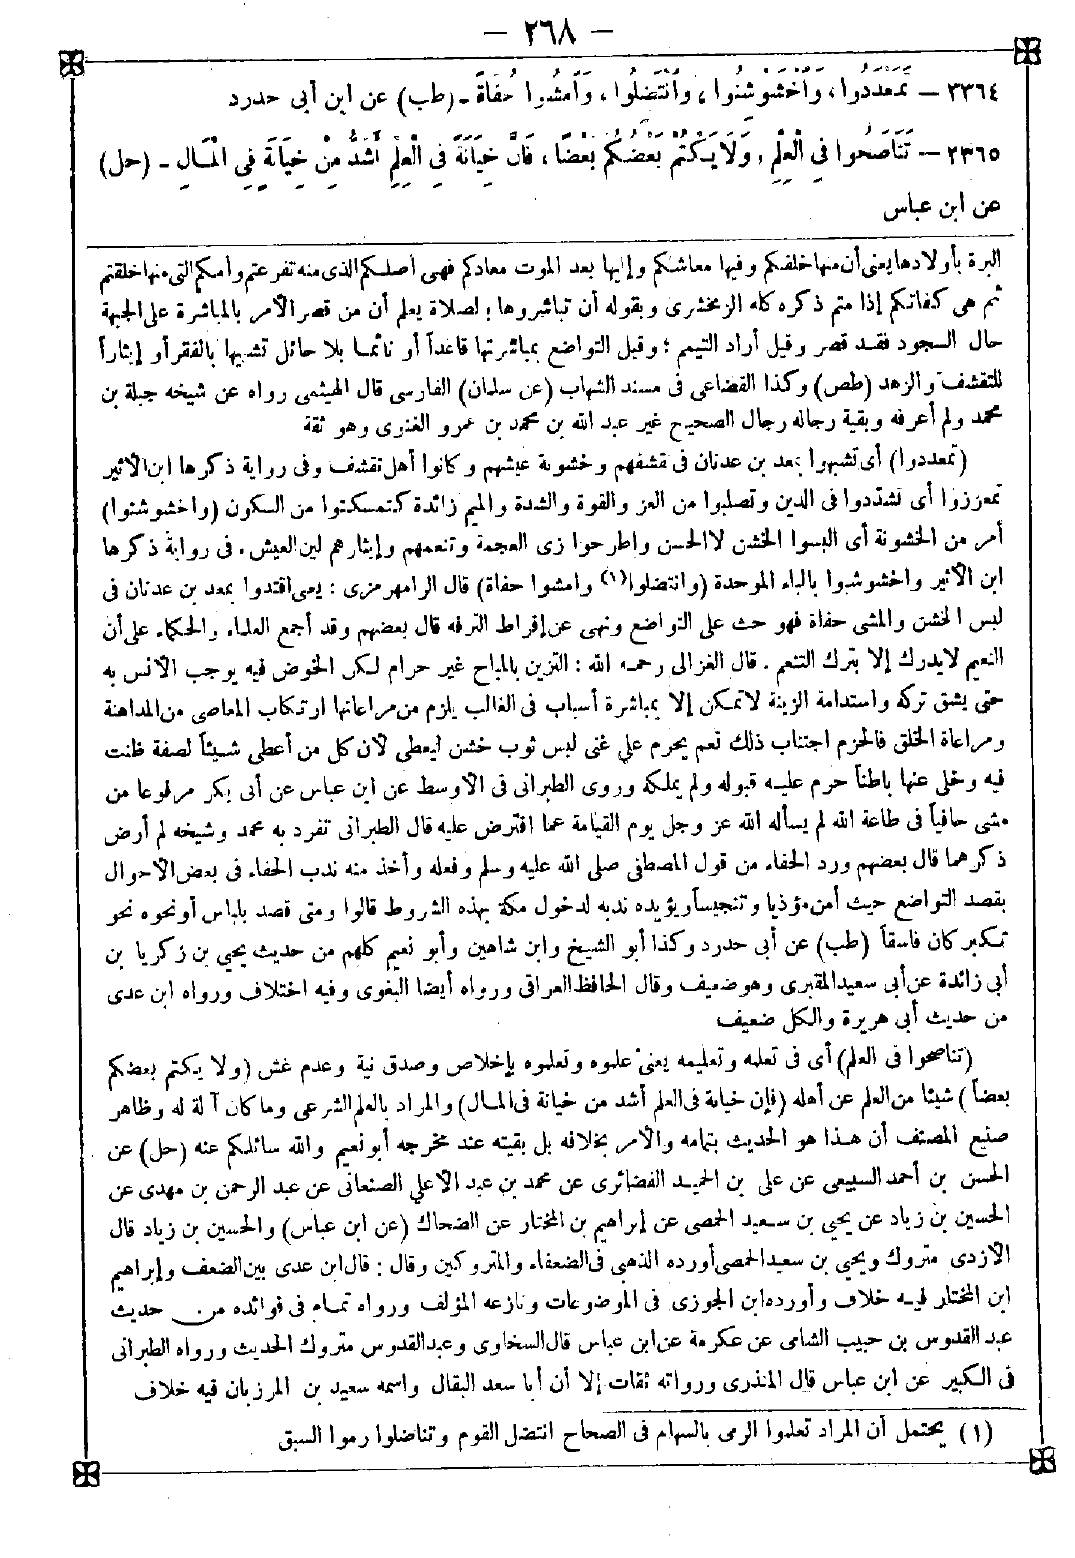 — ٢٦٨ —
٣٣٦٤ — تَمَعْدَدُوا، وَاخْشَوْشِنُوا، وَانْتَضِلُوا، وَامْشُوا حُفَاةً - (طب) عن ابن أبى حدرد
٣٣٦٥ — تَنَاصَحُوا فِي الْعِلْمِ، وَلَا يَكْتُمْ بَعْضُكُمْ بَعْضًا، فَإِنَّ خِيَانَةً فِي الْعِلْمِ أَشَدُّ مِنْ خِيَانَةٍ فِي الْمَالِ - (حل)
عن ابن عباس
البرة بأولادها يعنى أن منها خلقكم وفيها معاشكم وإليها بعد الموت معادكم فهى أصلكم الذى منه تفرعتم وأمكم التى منها خلقتم
ثم هى كفاتكم إذا متم ذكره كله الزمخشرى وبقوله أن تباشروها بالصلاة يعلم أن من قصر الأمر بالمباشرة على الجبهة
حال السجود فقد قصر وقيل أراد التيمم؛ وقيل التواضع بمباشرتها قاعداً أو نائما بلا حائل تشبيها بالفقر أو إيثاراً
للتقشف والزهد (طص) وكذا القضاعى فى مسند الشهاب (عن سلمان) الفارسى قال الهيثمى رواه عن شيخه جبلة بن
محمد ولم أعرفه وبقية رجاله رجال الصحيح غير عبد الله بن محمد بن عمرو الغزى وهو ثقة
(تمعددوا) أى تشبهوا بمعد بن عدنان فى تقشفهم وخشونة عيشهم وكانوا أهل تقشف وفى رواية ذكرها ابن الأثير
تمعززوا أى تشددوا فى الدين وتصلبوا من العز والقوة والشدة والميم زائدة كتمسكنوا من السكون (واخشوشنوا)
أمر من الخشونة أى البسوا الخشن لا الحسن واطرحوا زى العجمة وتنعمهم وإيثارهم لين العيش. فى رواية ذكرها
ابن الأثير واخشوشبوا بالباء الموحدة (وانتضلوا(١) وامشوا حفاة) قال الرامهرمزى: يعنى اقتدوا بمعد بن عدنان فى
لبس الخشن والمشى حفاة فهو حث على التواضع ونهى عن إفراط الترفه قال بعضهم وقد أجمع العلماء والحكماء على أن
النعيم لا يدرك إلا بترك التنعم. قال الغزالى رحمه الله: التزين بالمباح غير حرام لكن الخوض فيه يوجب الأنس به
حتى يشق تركه واستدامة الزينة لا تمكن إلا بمباشرة أسباب فى الغالب يلزم من مراعاتها ارتكاب المعاصى من المداهنة
ومراعاة الخلق فالحزم اجتناب ذلك نعم يحرم على غنى لبس ثوب خشن ليعطى لأن كل من أعطى شيئاً لصفة ظنت
فيه وخلى عنها باطناً حرم عليه قبوله ولم يملكه وروى الطبرانى فى الأوسط عن ابن عباس عن أبى بكر مرفوعا من
مشى حافياً فى طاعة الله لم يسأله الله عز وجل يوم القيامة عما افترض عليه قال الطبرانى تفرد به محمد وشيخه لم أرض
ذكرهما قال بعضهم ورد الحفاء من قول المصطفى صلى الله عليه وسلم وفعله وأخذ منه ندب الحفاء فى بعض الأحوال
بقصد التواضع حيث أمن مؤذيا وتنجيساً ويؤيده ندبه لدخول مكة بهذه الشروط قالوا ومتى قصد بلباس أو نحوه نحو
تكبر كان فاسقاً (طب) عن أبى حدرد وكذا أبو الشيخ وابن شاهين وأبو نعيم كلهم من حديث يحيى بن زكريا بن
أبى زائدة عن أبى سعيد المقبرى وهو ضعيف وقال الحافظ العراقى ورواه أيضا البغوى وفيه اختلاف ورواه ابن عدى
من حديث أبى هريرة والكل ضعيف
(تناصحوا فى العلم) أى فى تعلمه وتعليمه يعنى علموه وتعلموه بإخلاص وصدق نية وعدم غش (ولا يكتم بعضكم
بعضاً) شيئا من العلم عن أهله (فإن خيانة فى العلم أشد من خيانة فى المال) والمراد بالعلم الشرعى وما كان آلة له وظاهر
صنيع المصنف أن هذا هو الحديث بتمامه والأمر بخلافه بل بقيته عند مخرجه أبو نعيم والله سائلكم عنه (حل) عن
الحسن بن أحمد السبيعى عن على بن الحميد الغضائرى عن محمد بن عبد الأعلى الصنعانى عن عبد الرحمن بن مهدى عن
الحسين بن زياد عن يحيى بن سعيد الحمصى عن إبراهيم بن المختار عن الضحاك (عن ابن عباس) والحسين بن زياد قال
الأزدى متروك ويحيى بن سعيد الحمصى أورده الذهبى فى الضعفاء والمتروكين وقال: قال ابن عدى بين الضعف وإبراهيم
ابن المختار فيه خلاف وأورده ابن الجوزى فى الموضوعات ونازعه المؤلف ورواه تمام فى فوائده من حديث
عبد القدوس بن حبيب الشامى عن عكرمة عن ابن عباس قال السخاوى وعبد القدوس متروك الحديث ورواه الطبرانى
فى الكبير عن ابن عباس قال المنذرى ورواته ثقات إلا أن أبا سعد البقال واسمه سعيد بن المرزبان فيه خلاف
(١) يحتمل أن المراد تعلموا الرمى بالسهام فى الصحاح انتضل القوم وتناضلوا رموا السبق